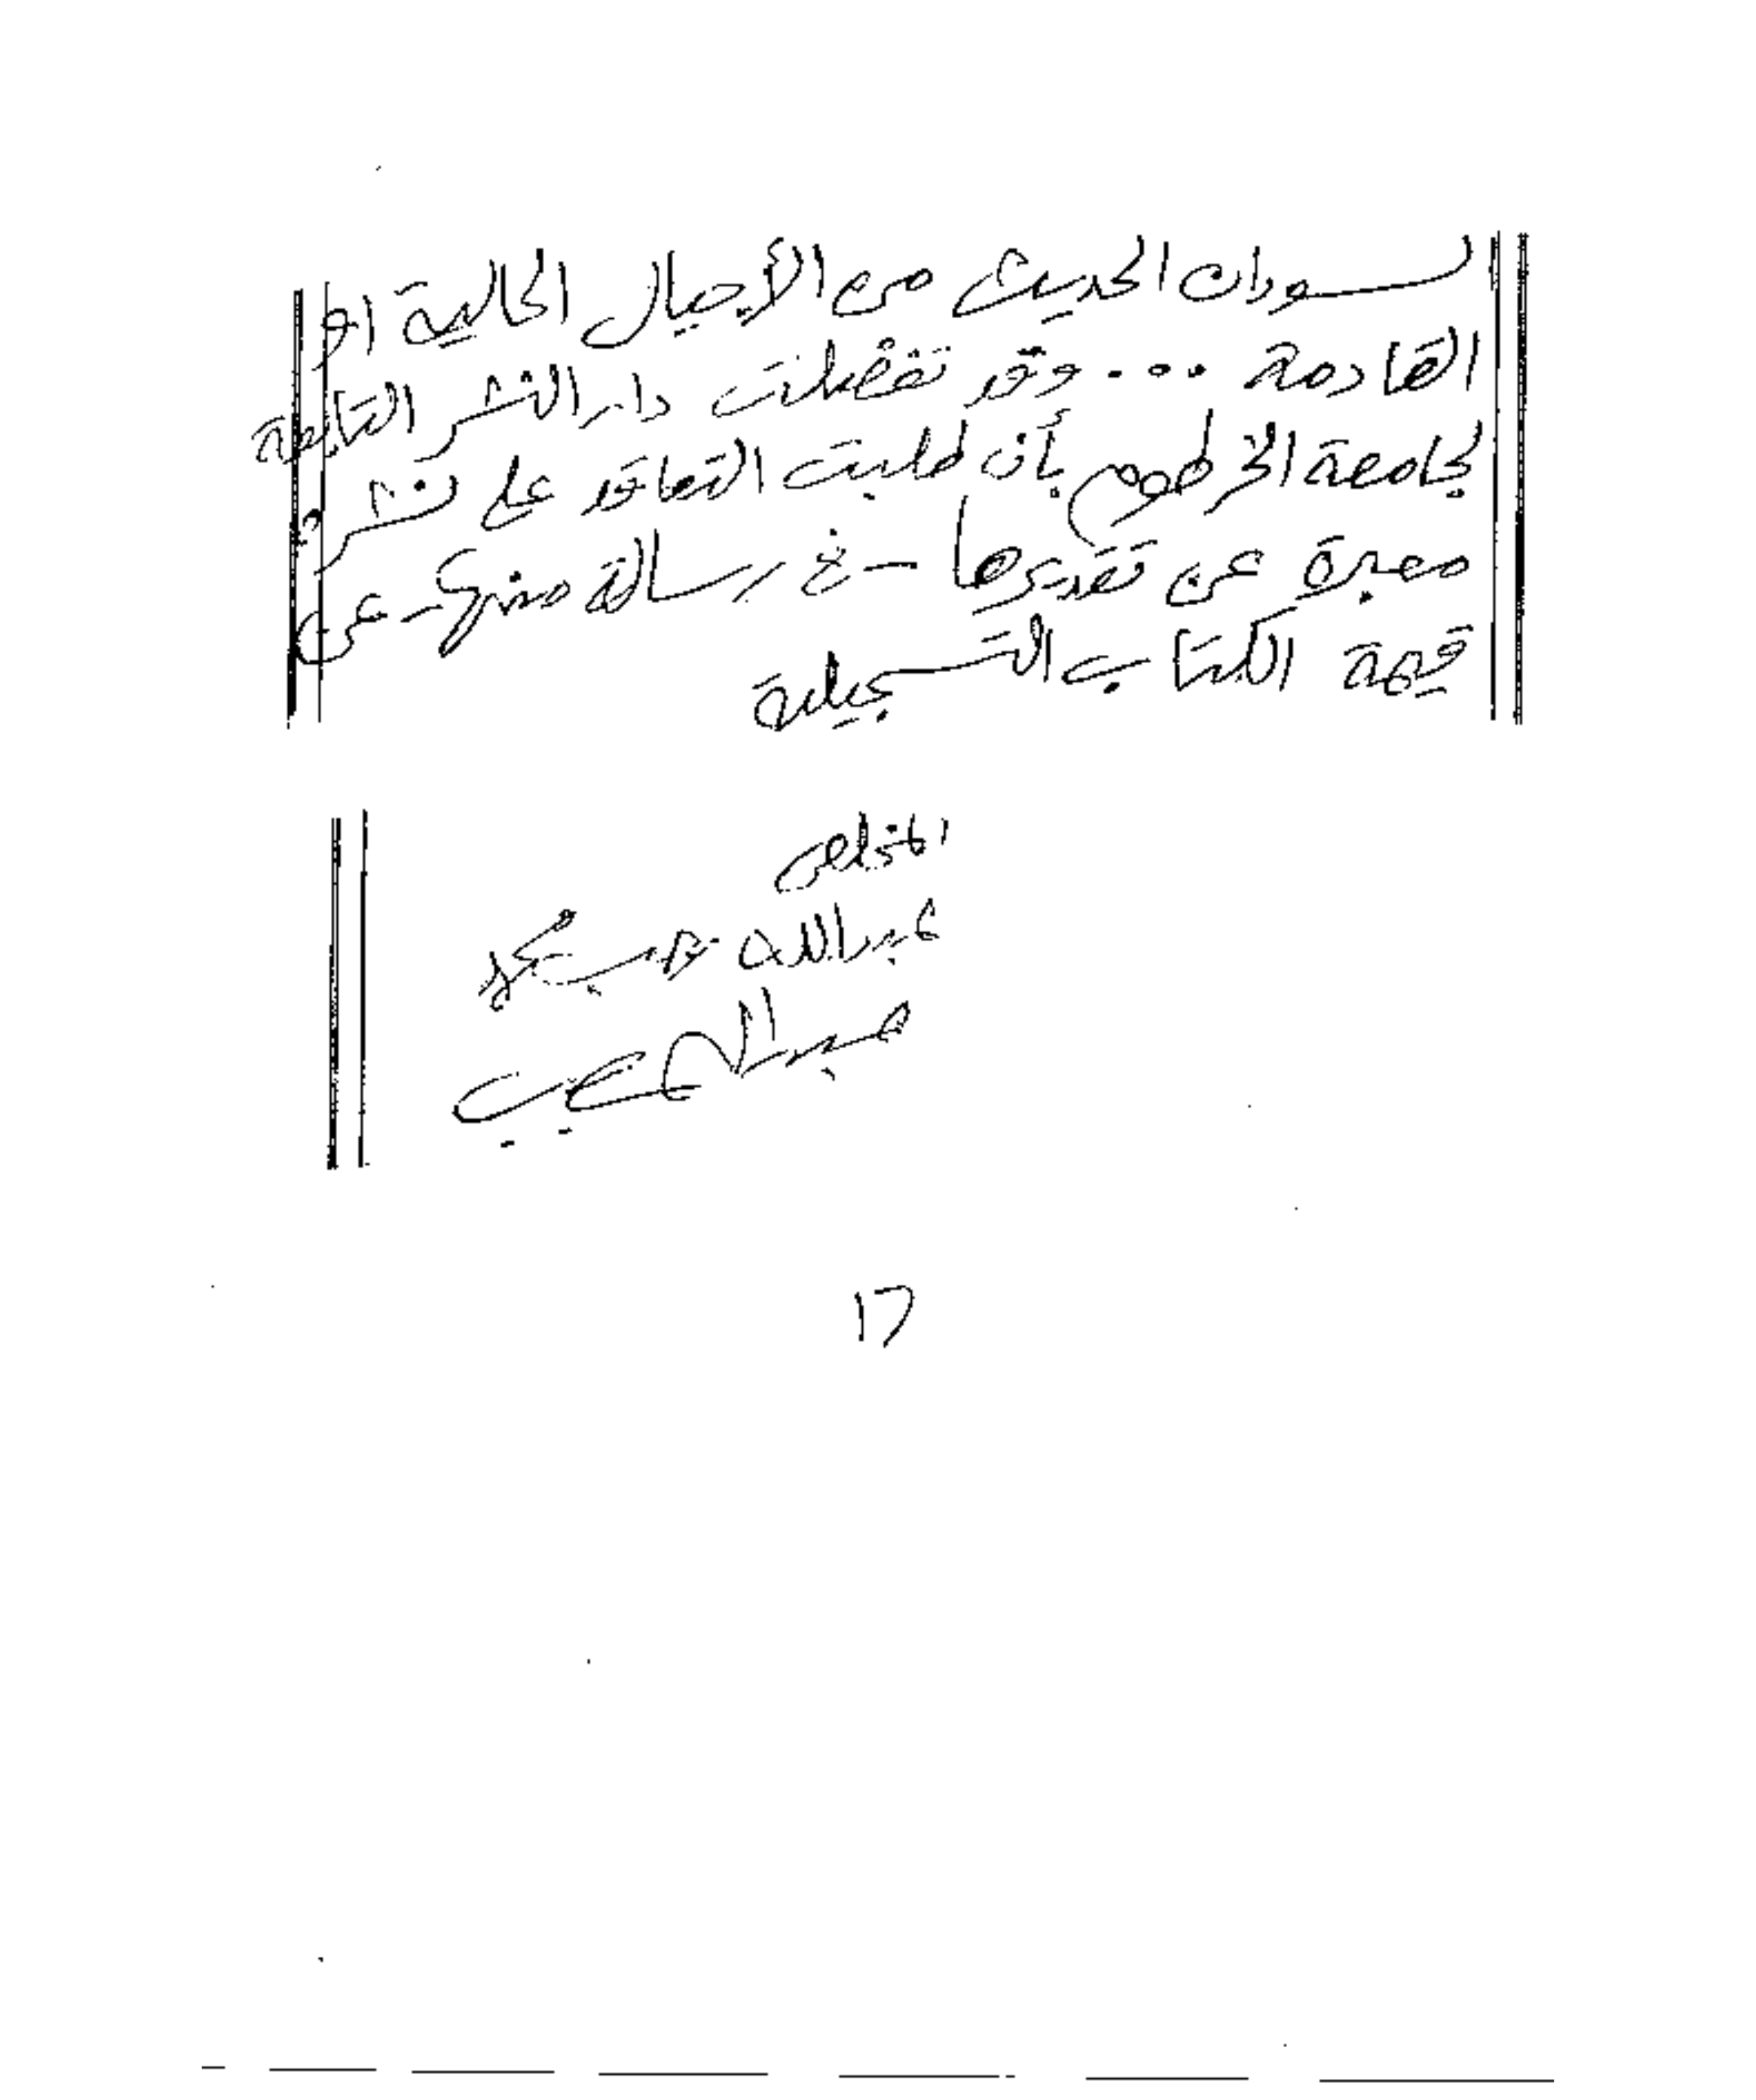 لسودان الحديث من الأجيال الحالية أو
القادمة .... وقد تفضلت دار النشر التابعة
لجامعة الخرطوم بأن طلبت التعاقد على نشره
معبرة عن تقديرها - في رسالة منها - عن
قيمة الكتاب التسجيلية
المخلص
عبد الله
١٦